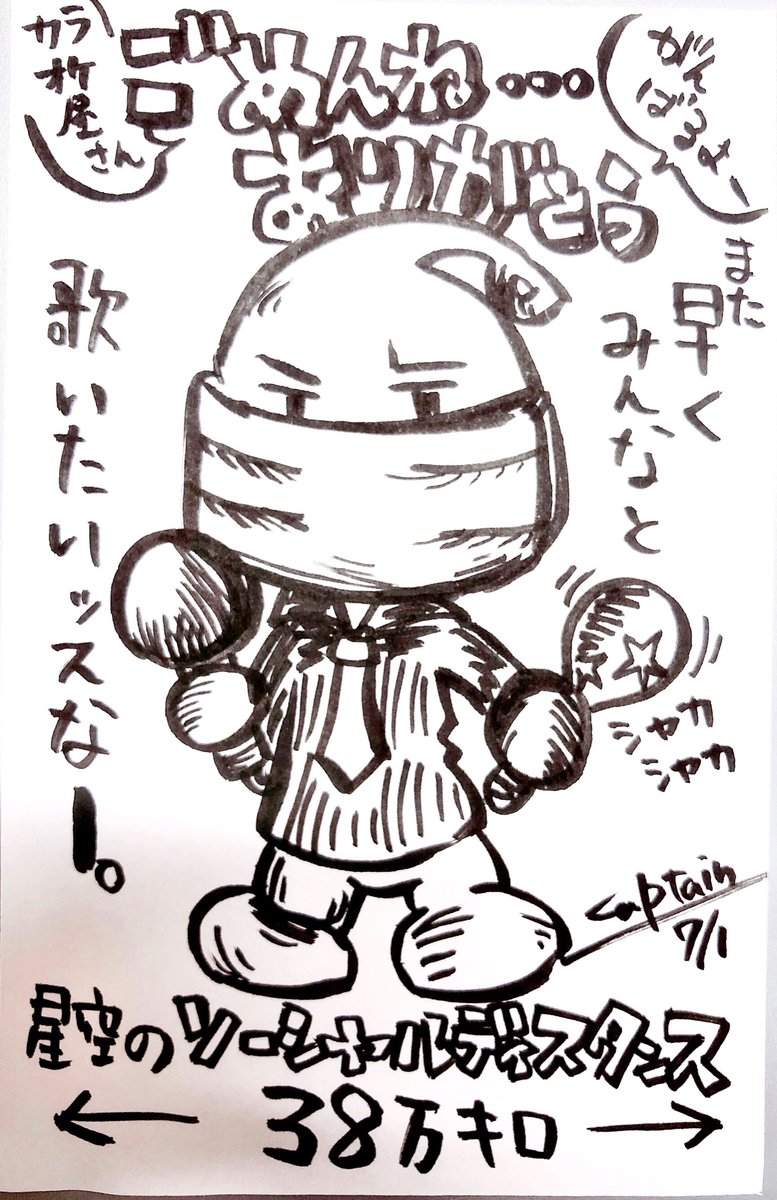 カラオケ屋さん
ごめんね...
ありがとう
がんばるよー
また早く
みんなと
歌いたいッスなー。
シャカ
シャカ
Captain
7/1
星空のソーシャルディスタンス
← 38万キロ →